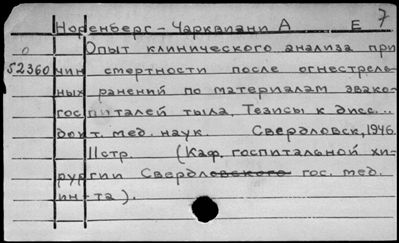 Норенберг-Чарквиани А Е 7
0 Опыт клинического анализа при
52360 чин смертности после огнестрель
ных ранений по материалам эвако-
госпиталей тыла. Тезисы к дисс. ..
докт. мед. наук. Свердловск, 1946.
11стр. (Каф. госпитальной хи-
рургии Свердловского гос. мед.
ин-та).